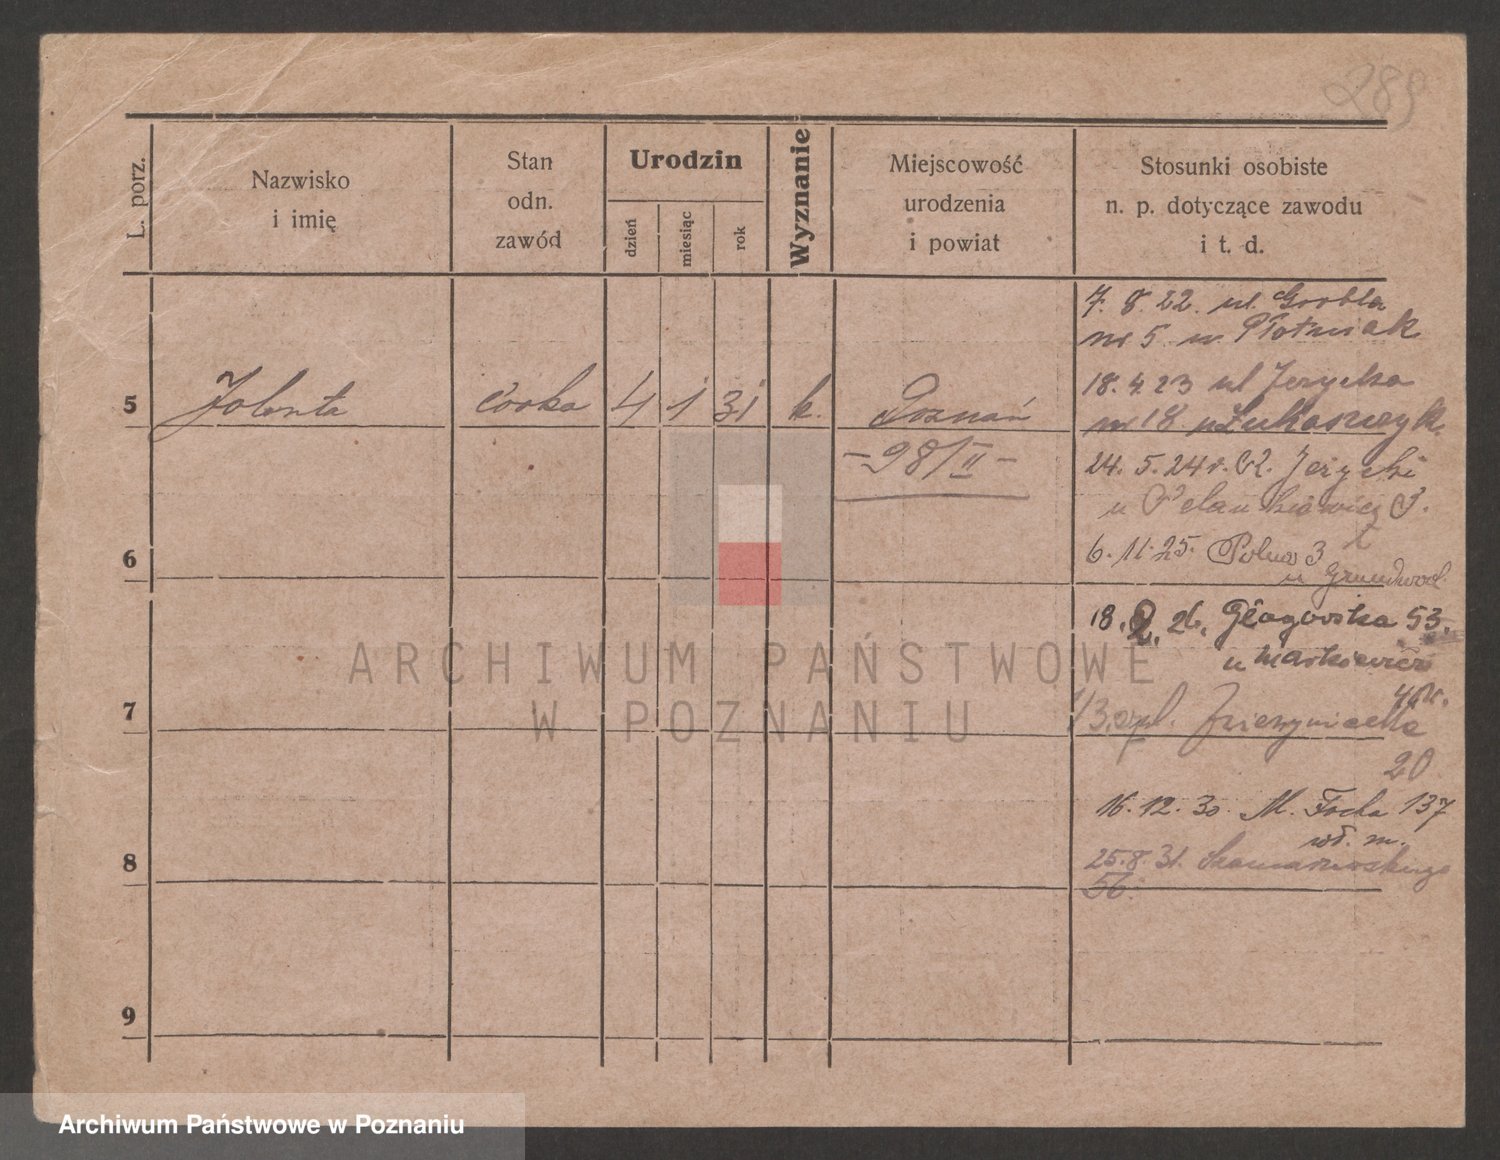 289
L. porz.
Nazwisko
i imię
Stan
odn.
zawód
Urodzin
dzień
miesiąc
rok
Wyznanie
Miejscowość
urodzenia
i powiat
Stosunki osobiste
n. p. dotyczące zawodu
i t. d.
7. 8. 22. ul. Grobla
nr 5. u. Płotniak
18. 4. 23 ul Jeżycka
nr 18 u Łukaszczyk.
5 Jolanta córka 4 1 31 k. Poznań
-98/II-
24. 5. 24 r. Jeżycki
u
6. 11. 25. Polna 3
u Grundwod.
6
18. 2. 26. Głogowska 53.
u Markiewicz
7
1/3. Zwierzyniecka
20
16. 12. 30. M. Focha 137
wł. m.
8
25. 8. 31. Szamarzewskiego
56.
9
ARCHIWUM PAŃSTWOWE
W POZNANIU
Archiwum Państwowe w Poznaniu